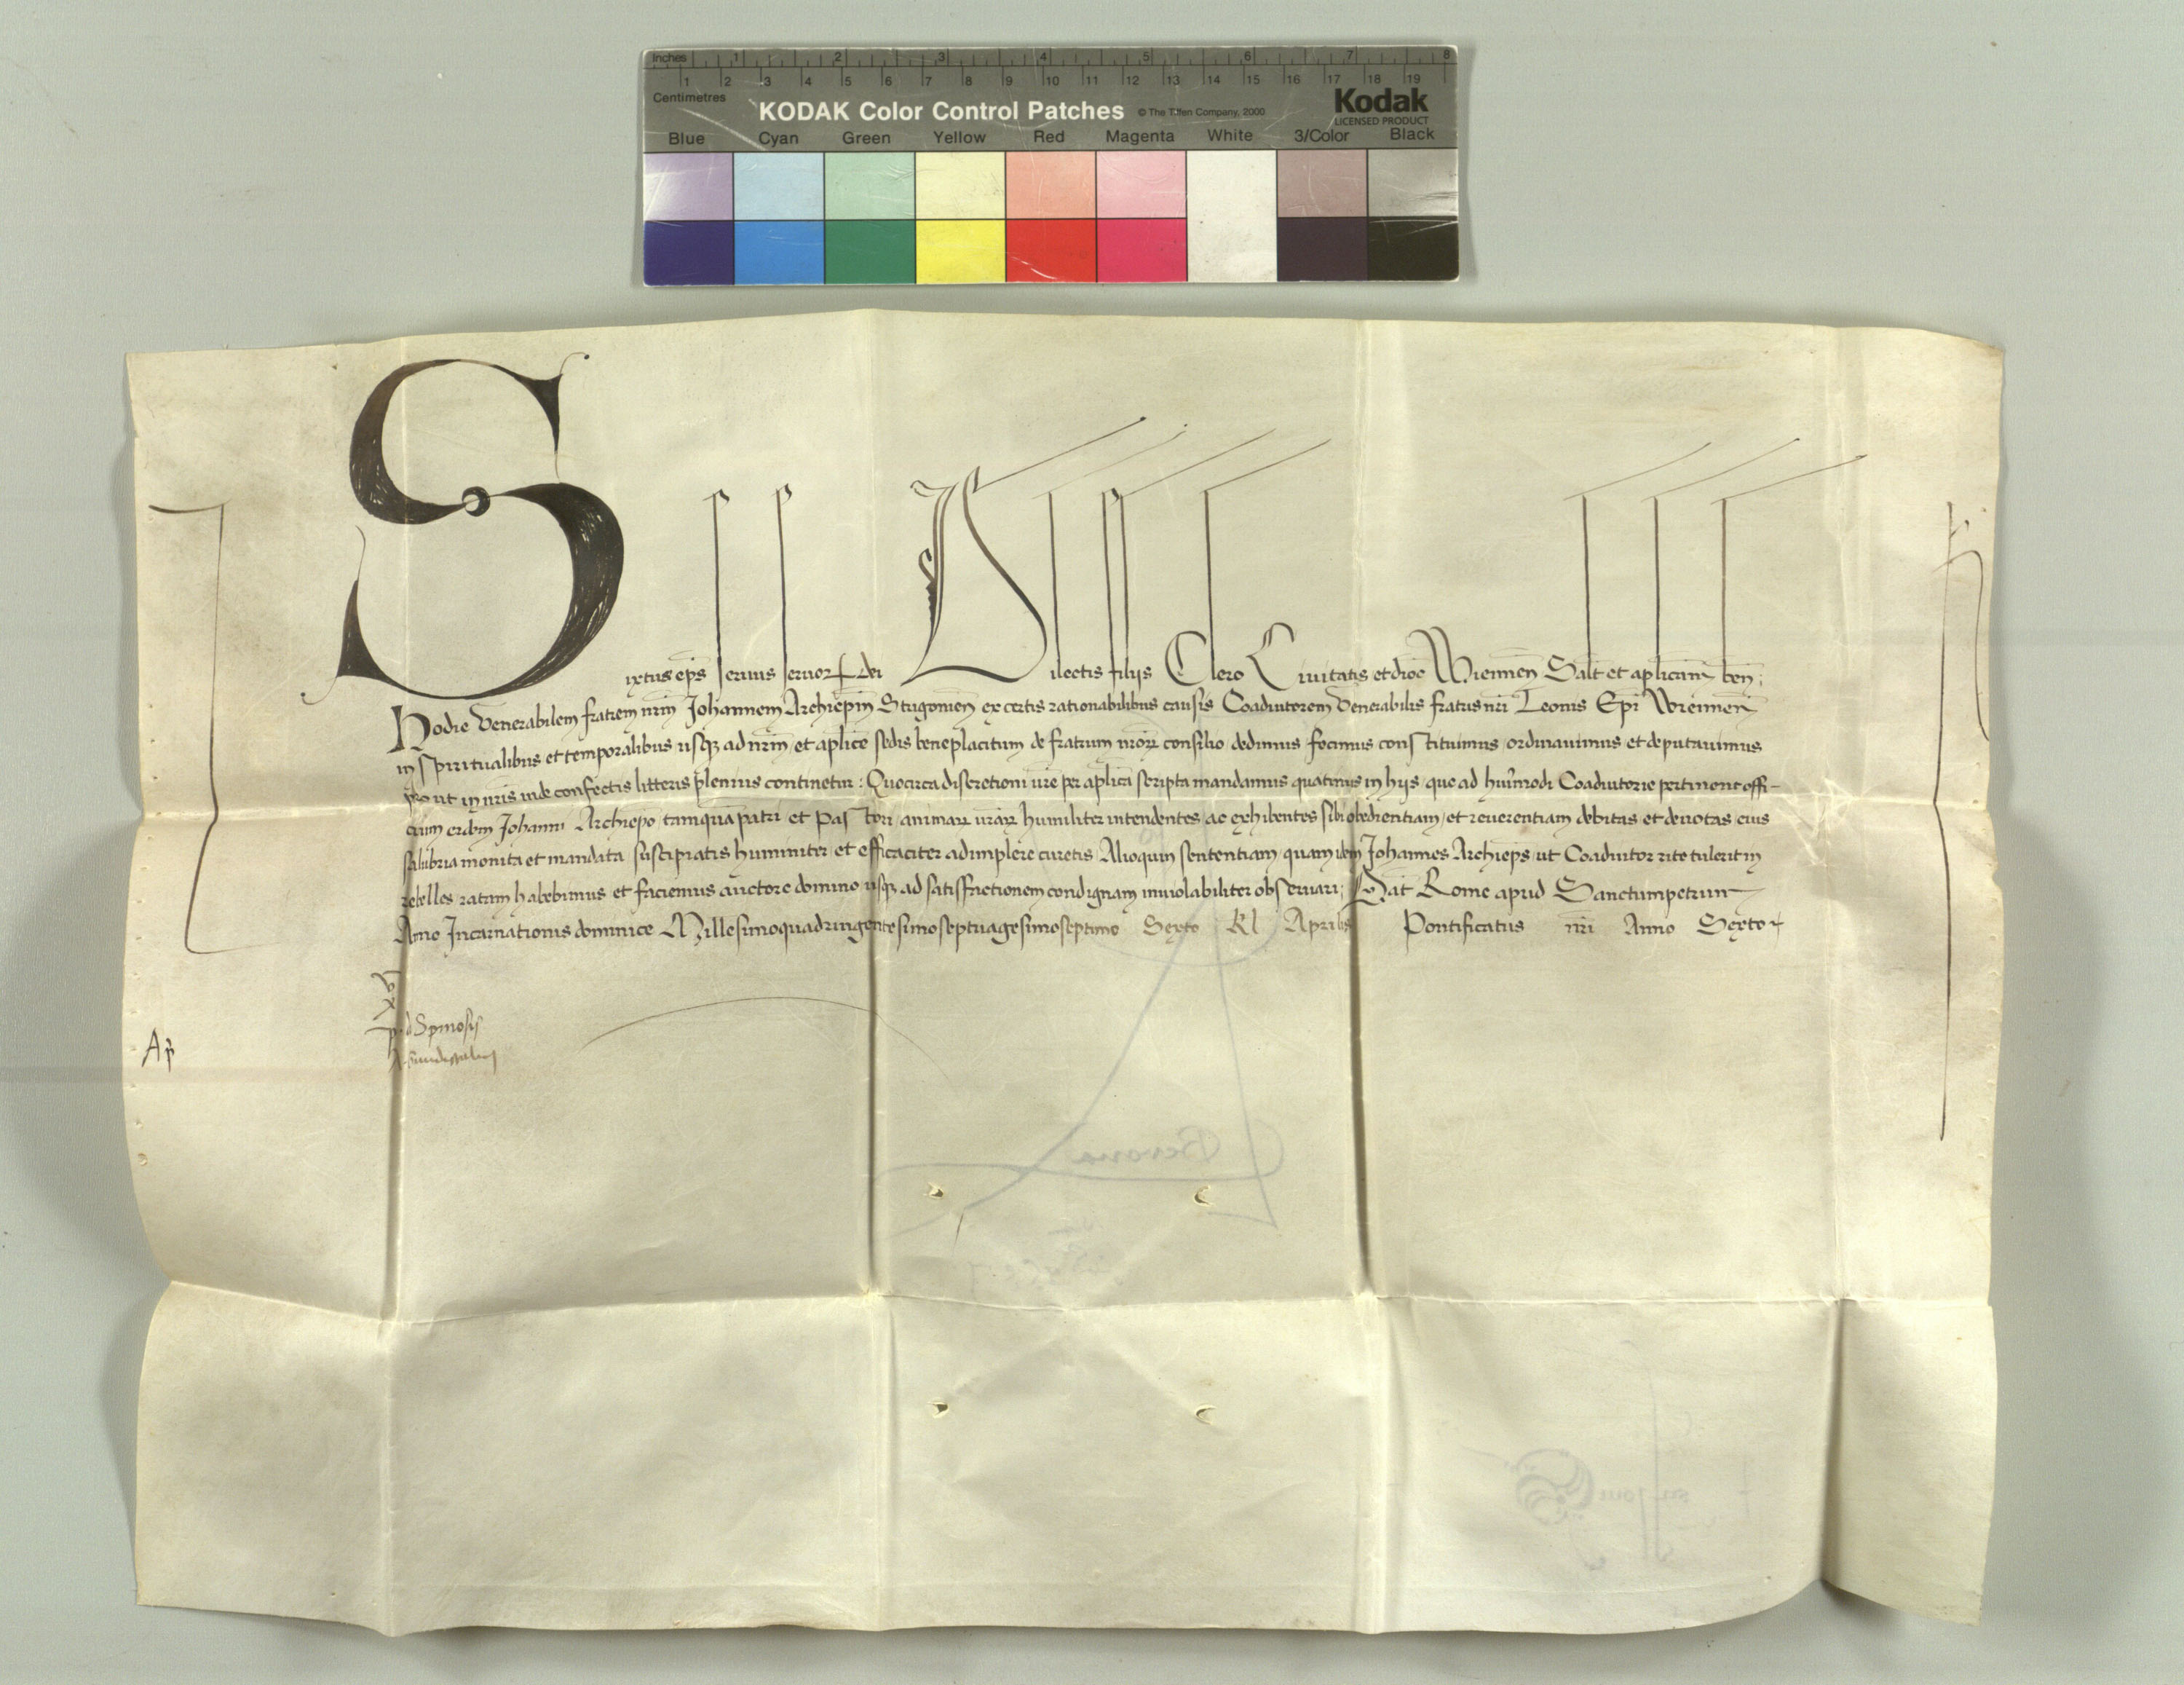 Inches 1 2 3 4 5 6 7 8
1 2 3 4 5 6 7 8 9 10 11 12 13 14 15 16 17 18 19
Centimetres
KODAK Color Control Patches © The Tiffen Company, 2000 Kodak
LICENSED PRODUCT
Blue Cyan Green Yellow Red Magenta White 3/Color Black
Sixtus ep̄s seruus seruoꝝ dei Dilectis filijs Clero Ciuitatis et dioc̄ Wiennen̄ Sal̄t et aplicam̄ ben̄.
Hodie Venerabilem fratrem nr̄m Johannem Archiep̄m Strigonien̄ ex certis rationabilibus causis Coadiutorem Venerabilis fratris nr̄i Leonis Ep̄i Wiennen̄
in spiritualibus et temporalibus usqꝫ ad nr̄m et aplice sedis beneplacitum de fratrum nr̄oꝝ consilio dedimus fecimus constituimus ordinauimus et deputauimus
prout in nr̄is inde confectis litteris plenius continetur: Quocirca discretioni ur̄e per aplica scripta mandamus quatinus in hijs que ad huīmodi Coadiutorie pertinent offi-
cium eidem Johanni Archiep̄o tamquā patri et Pastori animaꝝ ur̄aꝝ humiliter intendentes ac exhibentes sibi obedientiam et reuerentiam debitas et deuotas eius
salubria monita et mandata suscipiatis humiliter et efficaciter adimplere curetis Alioquin sententiam quam idem Johannes Archiep̄s ut Coadiutor rite tulerit in
rebelles ratam habebimus et faciemus auctore domino usqꝫ ad satisfactionem condignam inuiolabiliter obseruari. Dat̄ Rome apud Sanctumpetrum
Anno Incarnationis dominice Millesimoquadringentesimoseptuagesimoseptimo Sexto Kl̄ Aprilis Pontificatus nr̄i Anno Sexto
d Spinosis